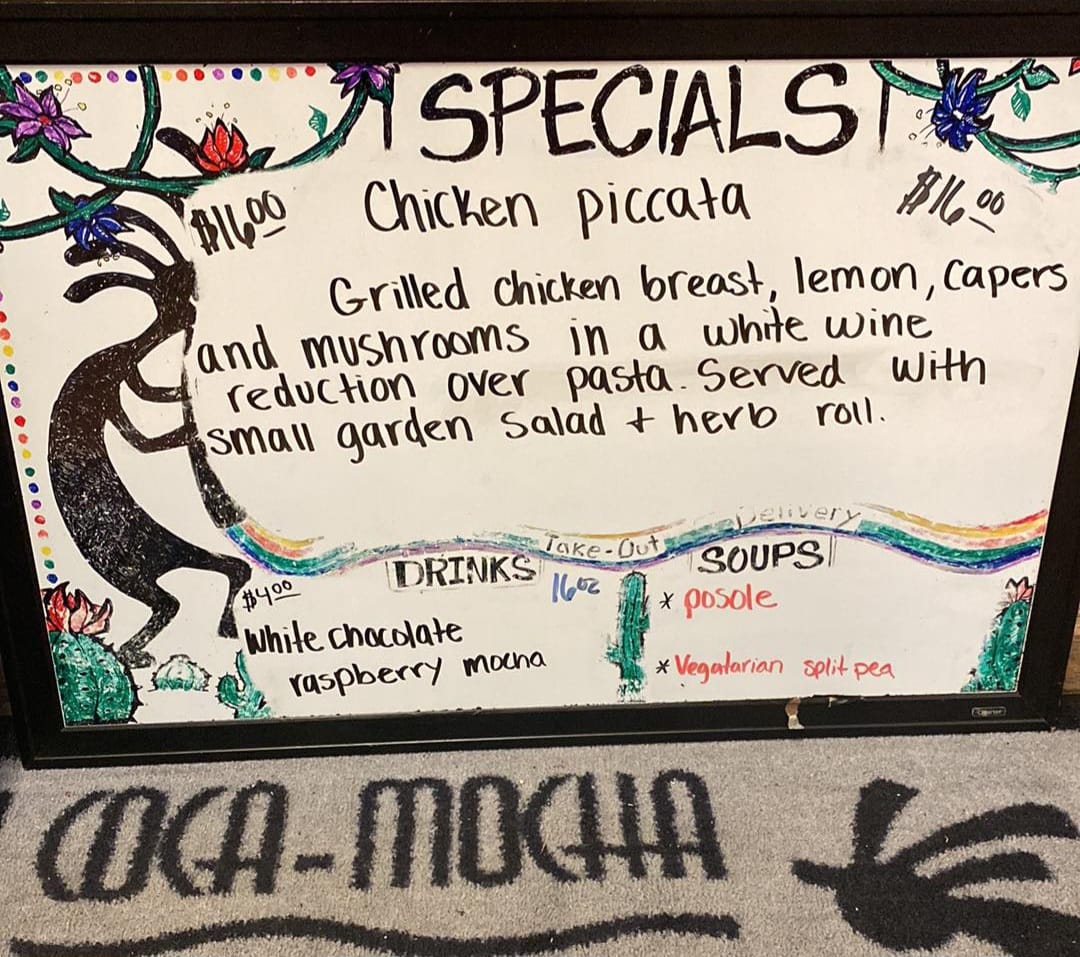 SPECIALS
$16.00 Chicken piccata $16.00
Grilled chicken breast, lemon, capers
and mushrooms in a white wine
reduction over pasta. Served with
small garden salad + herb roll.
Take-Out Delivery
DRINKS 16oz
$4.00
White chocolate
raspberry mocha
SOUPS
* posole
* Vegatarian split pea
COCA-MOCHA